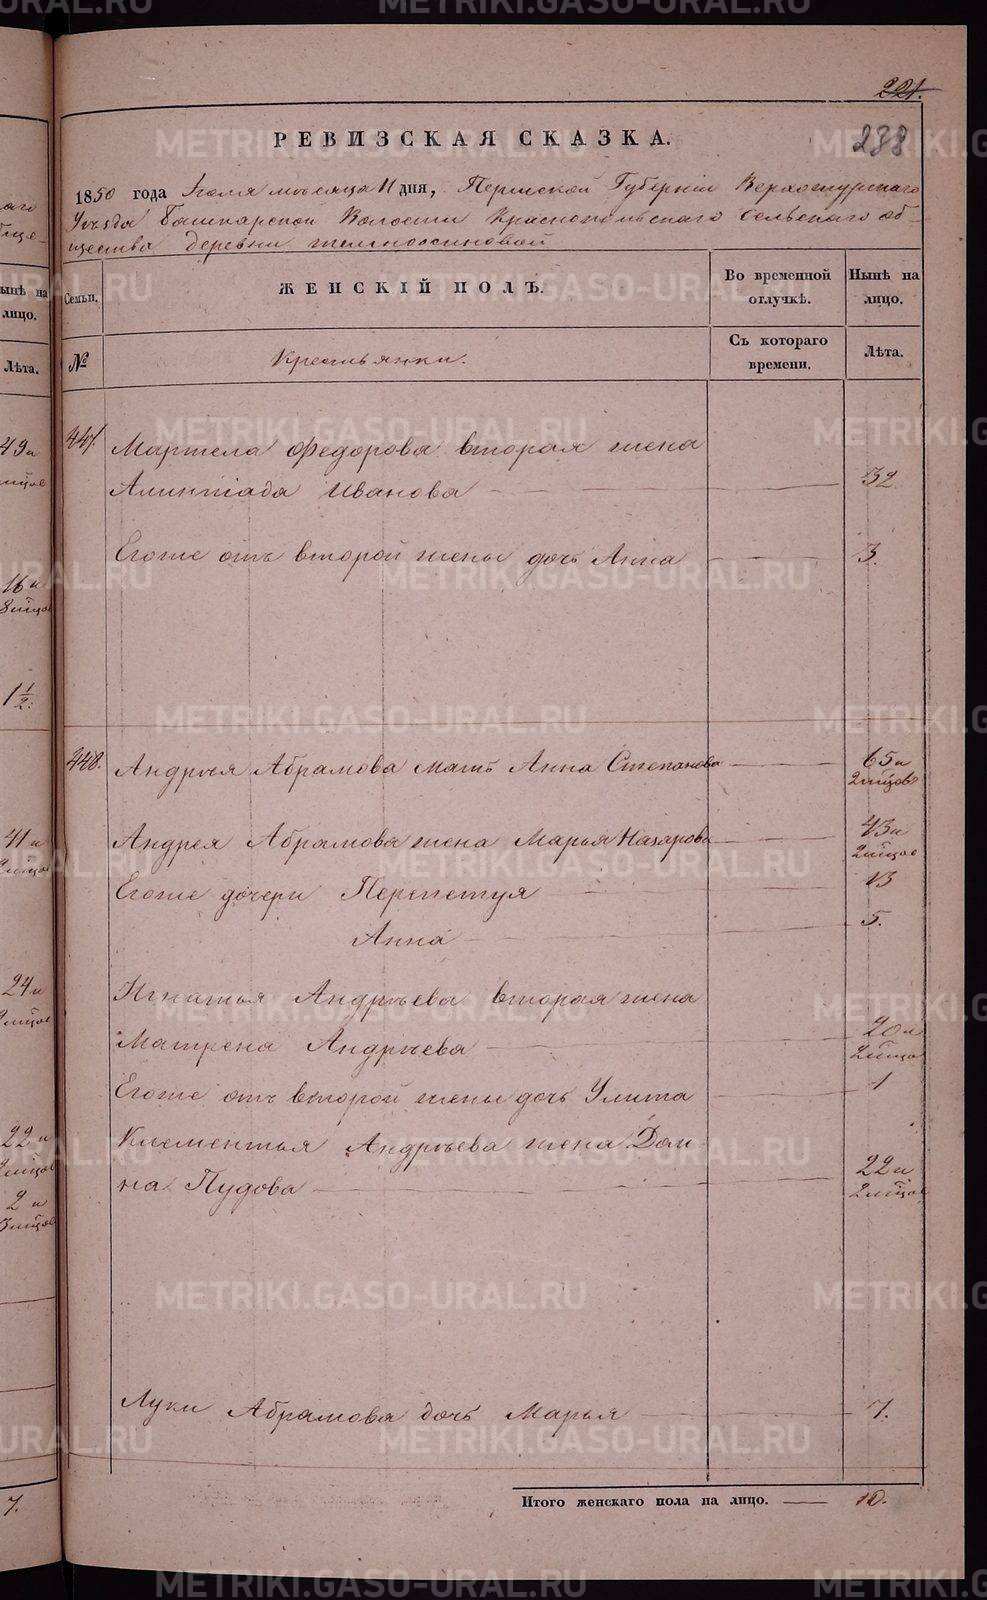 221.
РЕВИЗСКАЯ СКАЗКА.
238
1850 года Іюля мѣсяца 11 дня, Пермской Губерніи Верхотурскаго
Уѣзда Башкарской Волости Краснопольскаго сельскаго об-
щества деревни
Семьи.
ЖЕНСКІЙ ПОЛЪ.
Во временной отлучкѣ.
Нынѣ на лицо.
№
Крестьянки.
Съ котораго времени.
Лѣта.
447. Маркела Федорова вторая жена
Алимпіада Иванова 32
Егоже отъ второй жены дочь Анна 3.
448. Андрея Абрамова мать Анна Степанова 65 и 2 мѣсов
Андрея Абрамова жена Марья Назарова 43 и 2 мѣсов
Егоже дочери Перепетуя 13
Анна 5.
Игнатья Андрѣева вторая жена
Матрена Андрѣева 20 и 2 мѣсов
Егоже отъ второй жены дочь Улита 1
Клементья Андрѣева жена Дом
на Пудова 22 и 2 мѣсов
Луки Абрамова дочь Марья 7.
Итого женскаго пола на лицо. 10.
METRIKI.GASO-URAL.RU